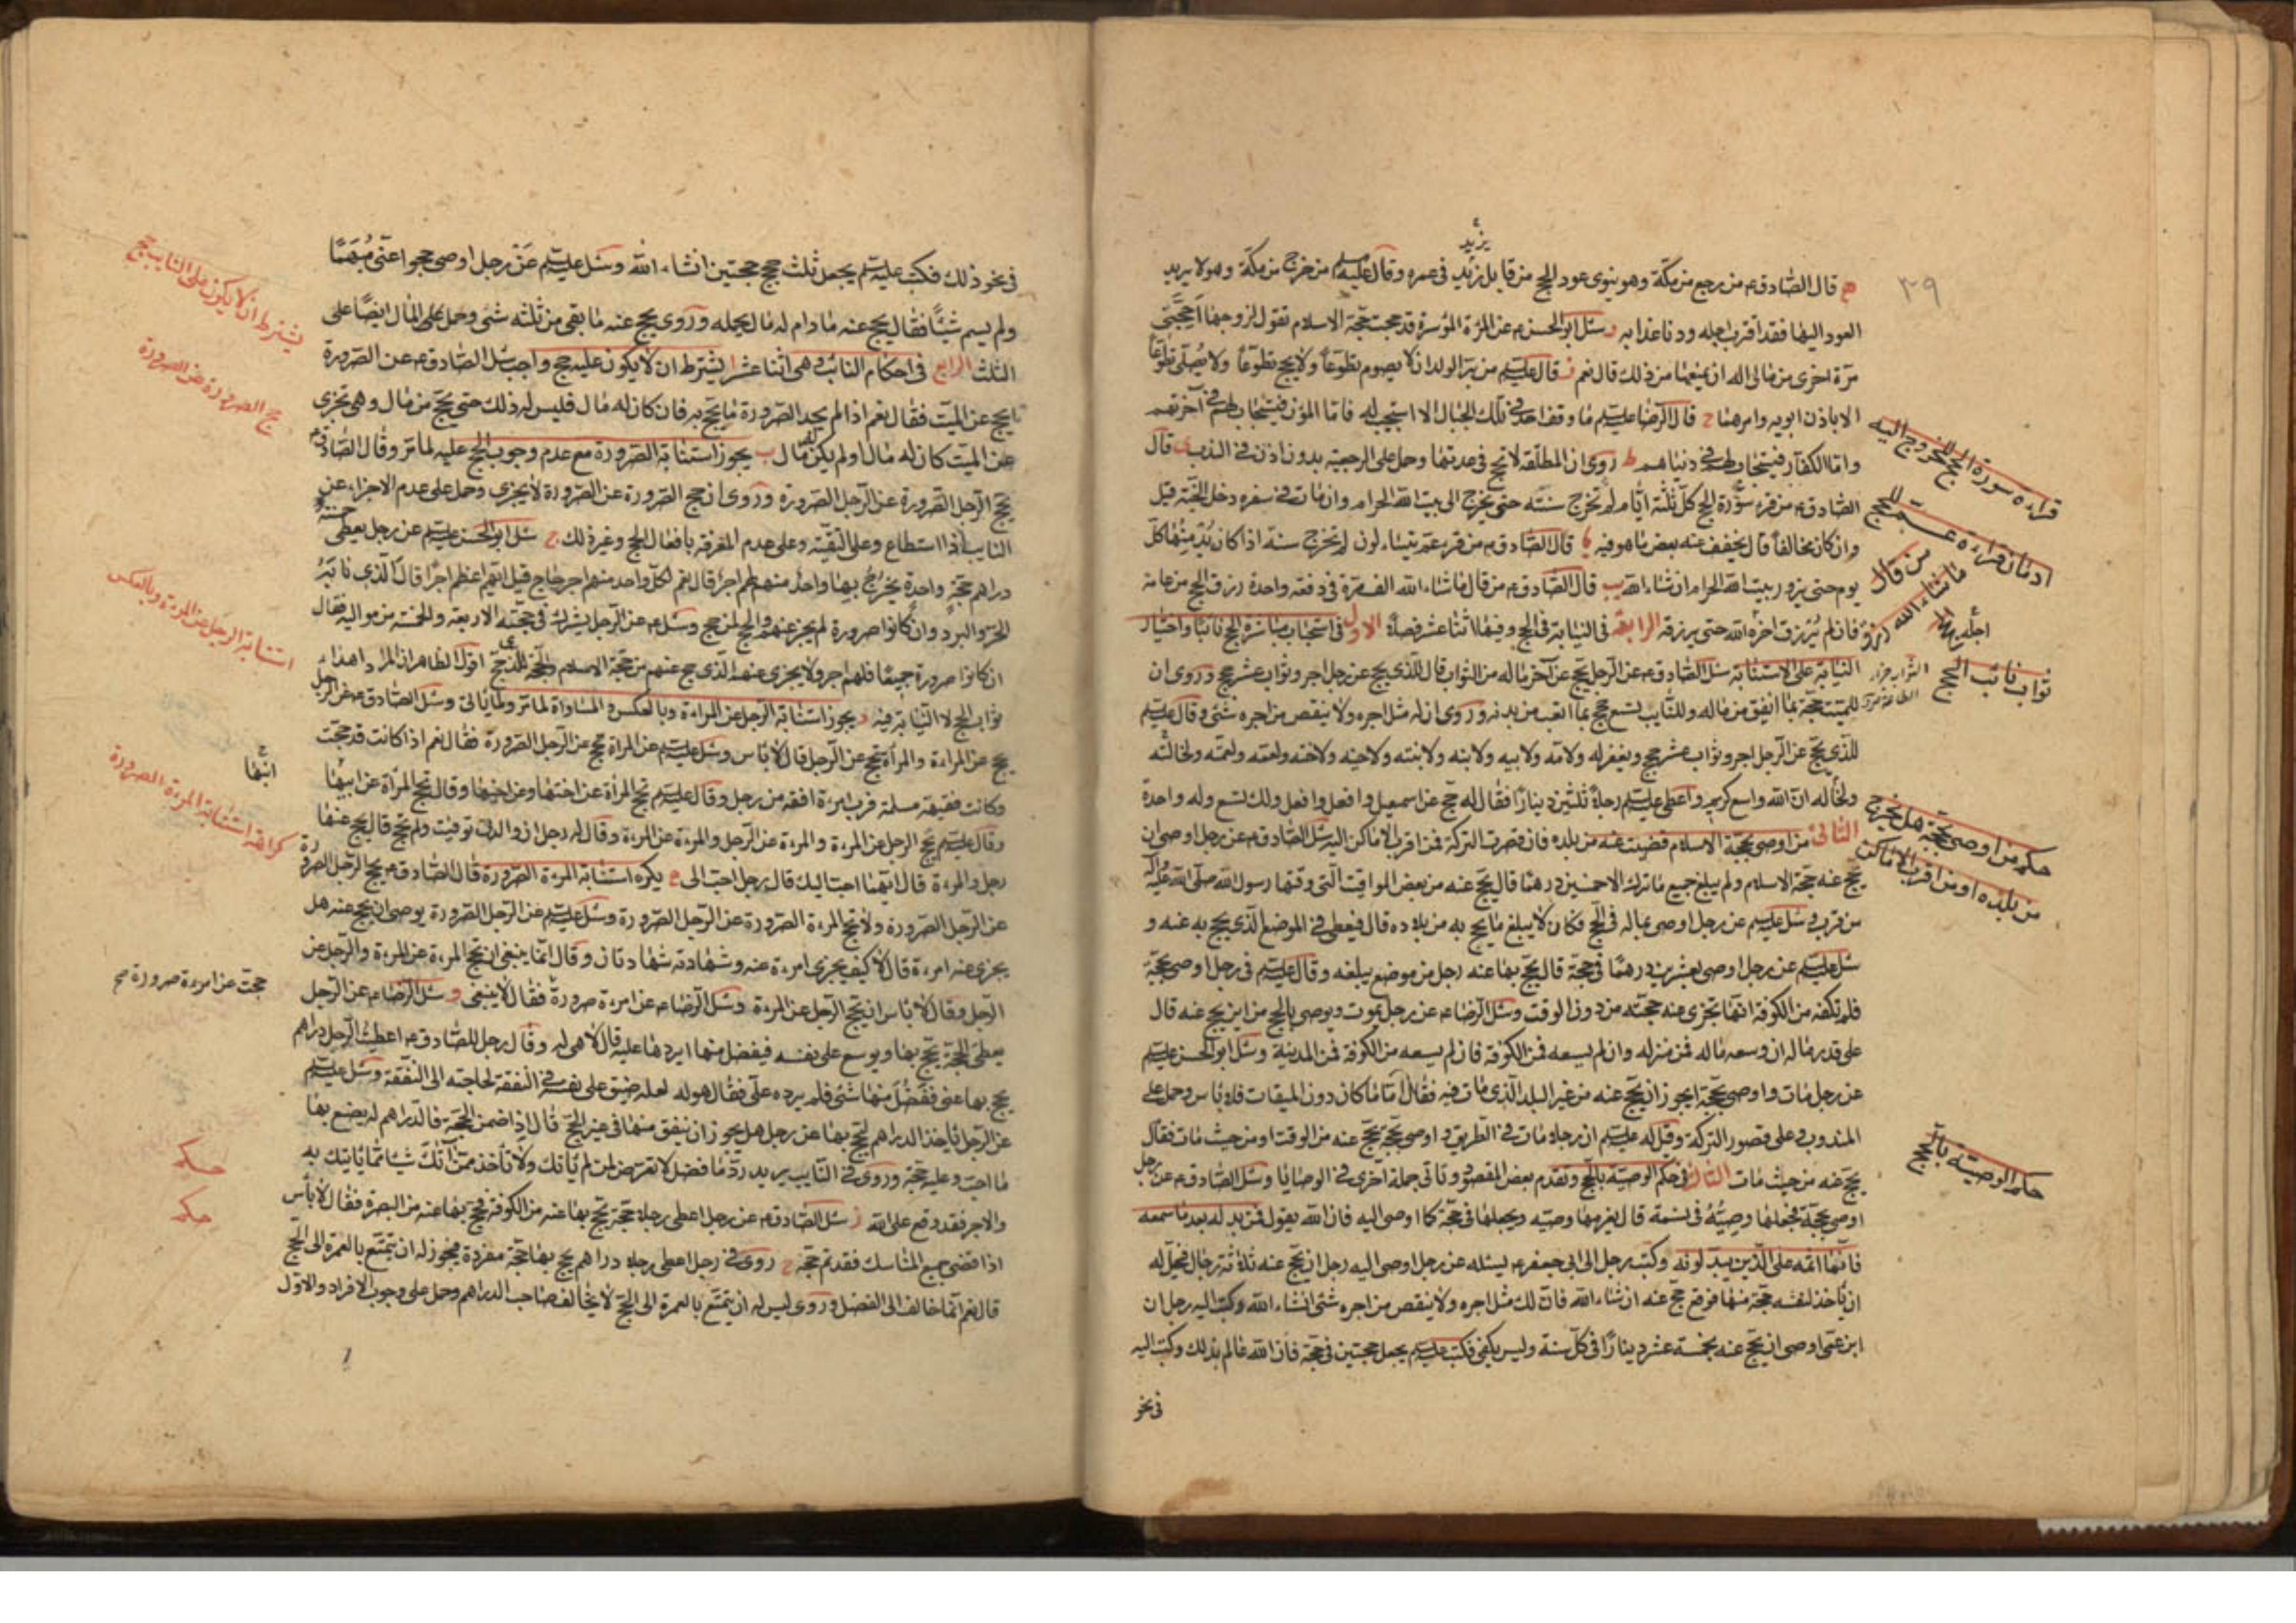 ٣٩
يزيد
ه قال الصادق ع من رجع من مكة وهو ينوى عود الحج من قابل زيد في عمره وقال عليه السلم من خرج من مكة وهو لا يريد
العود اليها فقد اقترب اجله ودنا عذابه و سئل ابو الحسن ع عن المرءة الموسرة قد حجت حجة الاسلام تقول لزوجها احجنى
مرة اخرى من مالى اله ان يمنعها من ذلك قال نعم ز قال عليه السلم من بر الولد ان لا يصوم تطوعا ولا يحج تطوعا ولا يصلى تطوعا
الا باذن ابويه وامرهما ح قال الرضا عليه السلم ما وقف احد في تلك الجبال الا استجيب له فاما المؤمن فيستجاب لهم في آخرتهم
واما الكفار فيستجاب لهم في دنياهم ط روى ان المطلقة لا تحج في عدتها وحمل على الرجعية بدون اذن في الندب ى قال
الصادق ع من قرء سورة الحج كل ثلثة ايام لم تخرج سنته حتى يخرج الى بيت الله الحرام وان مات في سفره دخل الجنة قيل
وان كان مخالفا قال يخفف عنه بعض ما هو فيه يا قال الصادق ع من قرء عم يتساءلون لم تخرج سنة اذا كان يدمنها كل
يوم حتى يزور بيت الله الحرام ان شاء الله يب قال الصادق ع من قال ما شاء الله الف مرة في دفعة واحدة رزق الحج من عامه
فان لم يرزق اخره الله حتى يرزقه الرابعة في النيابة في الحج وفيها اثنا عشر فصلا الاول في استحباب مباشرة الحج نائبا واختيار
النيابة على الاستنابة سئل الصادق ع عن الرجل يحج عن آخر ما له من الثواب قال للذى يحج عن رجل اجر وثواب عشر حجج وروى ان
للميت حجة بما انفق من ماله وللنايب تسع حجج بما اتعب من بدنه وروى ان له مثل اجره ولا ينقص من اجره شئ وقال عليه السلم
للذى يحج عن الرجل اجر وثواب عشر حجج ويغفر له ولامه ولابيه ولابنه ولابنته ولاخيه ولاخته ولعمه ولعمته ولخالته
ولخاله ان الله واسع كريم واعطى عليه السلم رجلا ثلثين دينارا فقال له حج عن اسمعيل وافعل وافعل ولك تسع وله واحدة
الثانى من اوصى بحجة الاسلام قضيت عنه من بلده فان قصرت التركة فمن اقرب الاماكن اليه سئل الصادق ع عن رجل اوصى ان
يحج عنه حجة الاسلام ولم يبلغ جميع ما ترك الا خمسين درهما قال يحج عنه من بعض المواقيت التى وقتها رسول الله صلى الله عليه وآله
من قرب و سئل عليه السلم عن رجل اوصى بماله في الحج فكان لا يبلغ ما يحج به من بلاده قال فيعطى في الموضع الذى يحج به عنه و
سئل عليه السلم عن رجل اوصى بعشرين درهما في حجة قال يحج بها عنه رجل من موضع يبلغه وقال عليه السلم في رجل اوصى بحجة
فلم تكفه من الكوفة انها تجزى عنه حجته من دون الوقت وسئل الرضا ع عن رجل يموت ويوصى بالحج من اين يحج عنه قال
على قدر ماله ان وسعه ماله فمن منزله وان لم يسعه فمن الكوفة فان لم يسعه من الكوفة فمن المدينة وسئل ابو الحسن عليه السلم
عن رجل مات واوصى بحجة ايجوز ان يحج عنه من غير البلد الذى مات فيه فقال اما ما كان دون الميقات فلا باس وحمل على
المندوب وعلى قصور التركة وقيل له عليه السلم ان رجلا مات في الطريق واوصى بحجة يحج عنه من الوقت او من حيث مات فقال
يحج عنه من حيث مات الثالث في حكم الوصية بالحج وتقدم بعض المقصود وتاتى جملة اخرى في الوصايا وسئل الصادق ع عن رجل
اوصى بحجة فجعلها وصيه في نسمة قال يغرمها وصيه ويجعلها في حجة كما اوصى اليه فان الله يقول فمن بدله بعد ما سمعه
فانما اثمه على الذين يبدلونه وكتب رجل الى ابى جعفر ع يسئله عن رجل اوصى اليه رجل ان يحج عنه ثلاثة رجال فيحل له
ان ياخذ لنفسه حجة منها فوقع حج عنه ان شاء الله فان لك مثل اجره ولا ينقص من اجره شئ انشاء الله وكتب اليه رجل ان
ابن عمى اوصى ان يحج عنه بخمسة عشر دينارا في كل سنة وليس يكفى فكتب عليه السلم يجعل حجتين في حجة فان الله عالم بذلك وكتب اليه
في نحو
قراءة سورة الحج للخروج اليه
ادمان قراءة عم للحج
من قال ما شاء الله
ثواب نائب الحج
حكم من اوصى بحجة هل يخرج
من بلده او من اقرب الاماكن
حكم الوصية بالحج
في نحو ذلك فكتب عليه السلم يجعل ثلث حجج حجتين انشاء الله وسئل عليه السلم عن رجل اوصى حجوا عنى مبهما
ولم يسم شيئا فقال يحج عنه ما دام له مال يحمله وروى يحج عنه ما بقى من ثلثه شئ وحمل على المال ايضا على
الثلث الرابع في احكام النائب وهى اثنا عشر ا يشترط ان لا يكون عليه حج واجب سئل الصادق ع عن الصرورة
ايحج عن الميت فقال نعم اذا لم يجد الصرورة ما يحج به فان كان له مال فليس له ذلك حتى يحج من مال وهى تجزى
عن الميت كان له مال او لم يكن له مال ب يجوز استنابة الصرورة مع عدم وجوب الحج عليه لما مر وقال الصادق ع
يحج الرجل الصرورة عن الرجل الصرورة وروى ان حج الصرورة عن الصرورة لا يجزى وحمل على عدم الاجزاء عن
النايب اذا استطاع وعلى التقية وعلى عدم المعرفة بافعال الحج وغير ذلك ج سئل ابو الحسن عليه السلم عن رجل يعطى خمسة
دراهم حجة واحدة يخرج بها واحد منهم لهم اجر قال نعم لكل واحد منهم اجر حاج قيل ايهم اعظم اجرا قال الذى نابه
الحر والبرد وان كانوا صرورة لم يجز عنهم والحج لمن حج وسئل ع عن الرجل يشرك في حجته الاربعة والخمسة من مواليه فقال
ان كانوا صرورة جميعا فلهم اجر ولا يجزى عنهم الذى حج عنهم من حجة الاسلام والحجة للذى حج اقول الظاهر ان المراد اهداء
ثواب الحج لا النيابة فيه د يجوز استنابة الرجل عن المراءة وبالعكس والمساواة لما مر ولما ياتى وسئل الصادق ع عن الرجل
يحج عن المراءة والمرأة تحج عن الرجل قال لا باس وسئل عليه السلم عن المراة تحج عن الرجل الصرورة فقال نعم اذا كانت قد حجت
وكانت فقيهة مسلمة فرب امرءة افقه من رجل وقال عليه السلم تحج المرأة عن اختها وعن اخيها وقال تحج المرأة عن ابيها
وقال عليه السلم يحج الرجل عن المرءة والمرءة عن الرجل والمرءة عن المرءة وقال له رجل ان والدتى توفيت ولم تحج قال يحج عنها
رجل والمرءة قال ايهما احب اليك قال رجل احب الى ه يكره استنابة المرءة الصرورة قال الصادق ع يحج الرجل الصرورة
عن الرجل الصرورة ولا تحج المرءة الصرورة عن الرجل الصرورة وسئل عليه السلم عن الرجل الصرورة يوصى ان يحج عنه هل
يجزى عنه امرءة قال لا كيف يجزى امرءة عنه وشهادته شهادتان وقال انما ينبغى ان تحج المرءة عن المرءة والرجل عن
الرجل وقال لا باس ان يحج الرجل عن المرءة وسئل الرضا ع عن امرءة صرورة فقال لا ينبغى و سئل الرضا ع عن الرجل
يعطى الحجة يحج بها ويوسع على نفسه فيفضل منها ايردها عليه قال لا هى له وقال رجل للصادق ع اعطيت الرجل دراهم
يحج بها عنى ففضل منها شئ فلم يرده على فقال هو له لعله ضيق على نفسه في النفقة لحاجته الى النفقة وسئل عليه السلم
عن الرجل ياخذ الدراهم ليحج بها عن رجل هل يجوز ان ينفق منها في غير الحج قال اذا ضمن الحجة فالدراهم له يصنع بها
ما احب وعليه حجة وروى في النايب يريد رد ما فضل لا تعرض لمن لم ياتك ولا تأخذ ممن اتك شيا مما ياتيك به
والاجر فقد وقع على الله ز سئل الصادق ع عن رجل اعطى رجلا حجة يحج بها عنه من الكوفة فحج بها عنه من البصرة فقال لا بأس
اذا قضى جميع المناسك فقد تم حجه ح روى في رجل اعطى رجلا دراهم يحج بها حجة مفردة فيجوز له ان يتمتع بالعمرة الى الحج
قال نعم انما خالف الى الفضل وروى ليس له ان يتمتع بالعمرة الى الحج لا يخالف صاحب الدراهم وحمل على وجوب الافراد والاول
يشترط ان لا يكون على النايب حج
حج الصرورة عن الصرورة
استنابة الرجل عن المرءة وبالعكس
ابنها
كراهة استنابة المرءة الصرورة
حجت عن امرءة صرورة صح
حكم
حكم